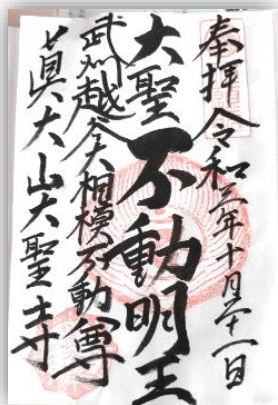 奉拝 令和三年十月三十一日
大聖不動明王
武州越谷大相模不動尊
眞大山大聖寺